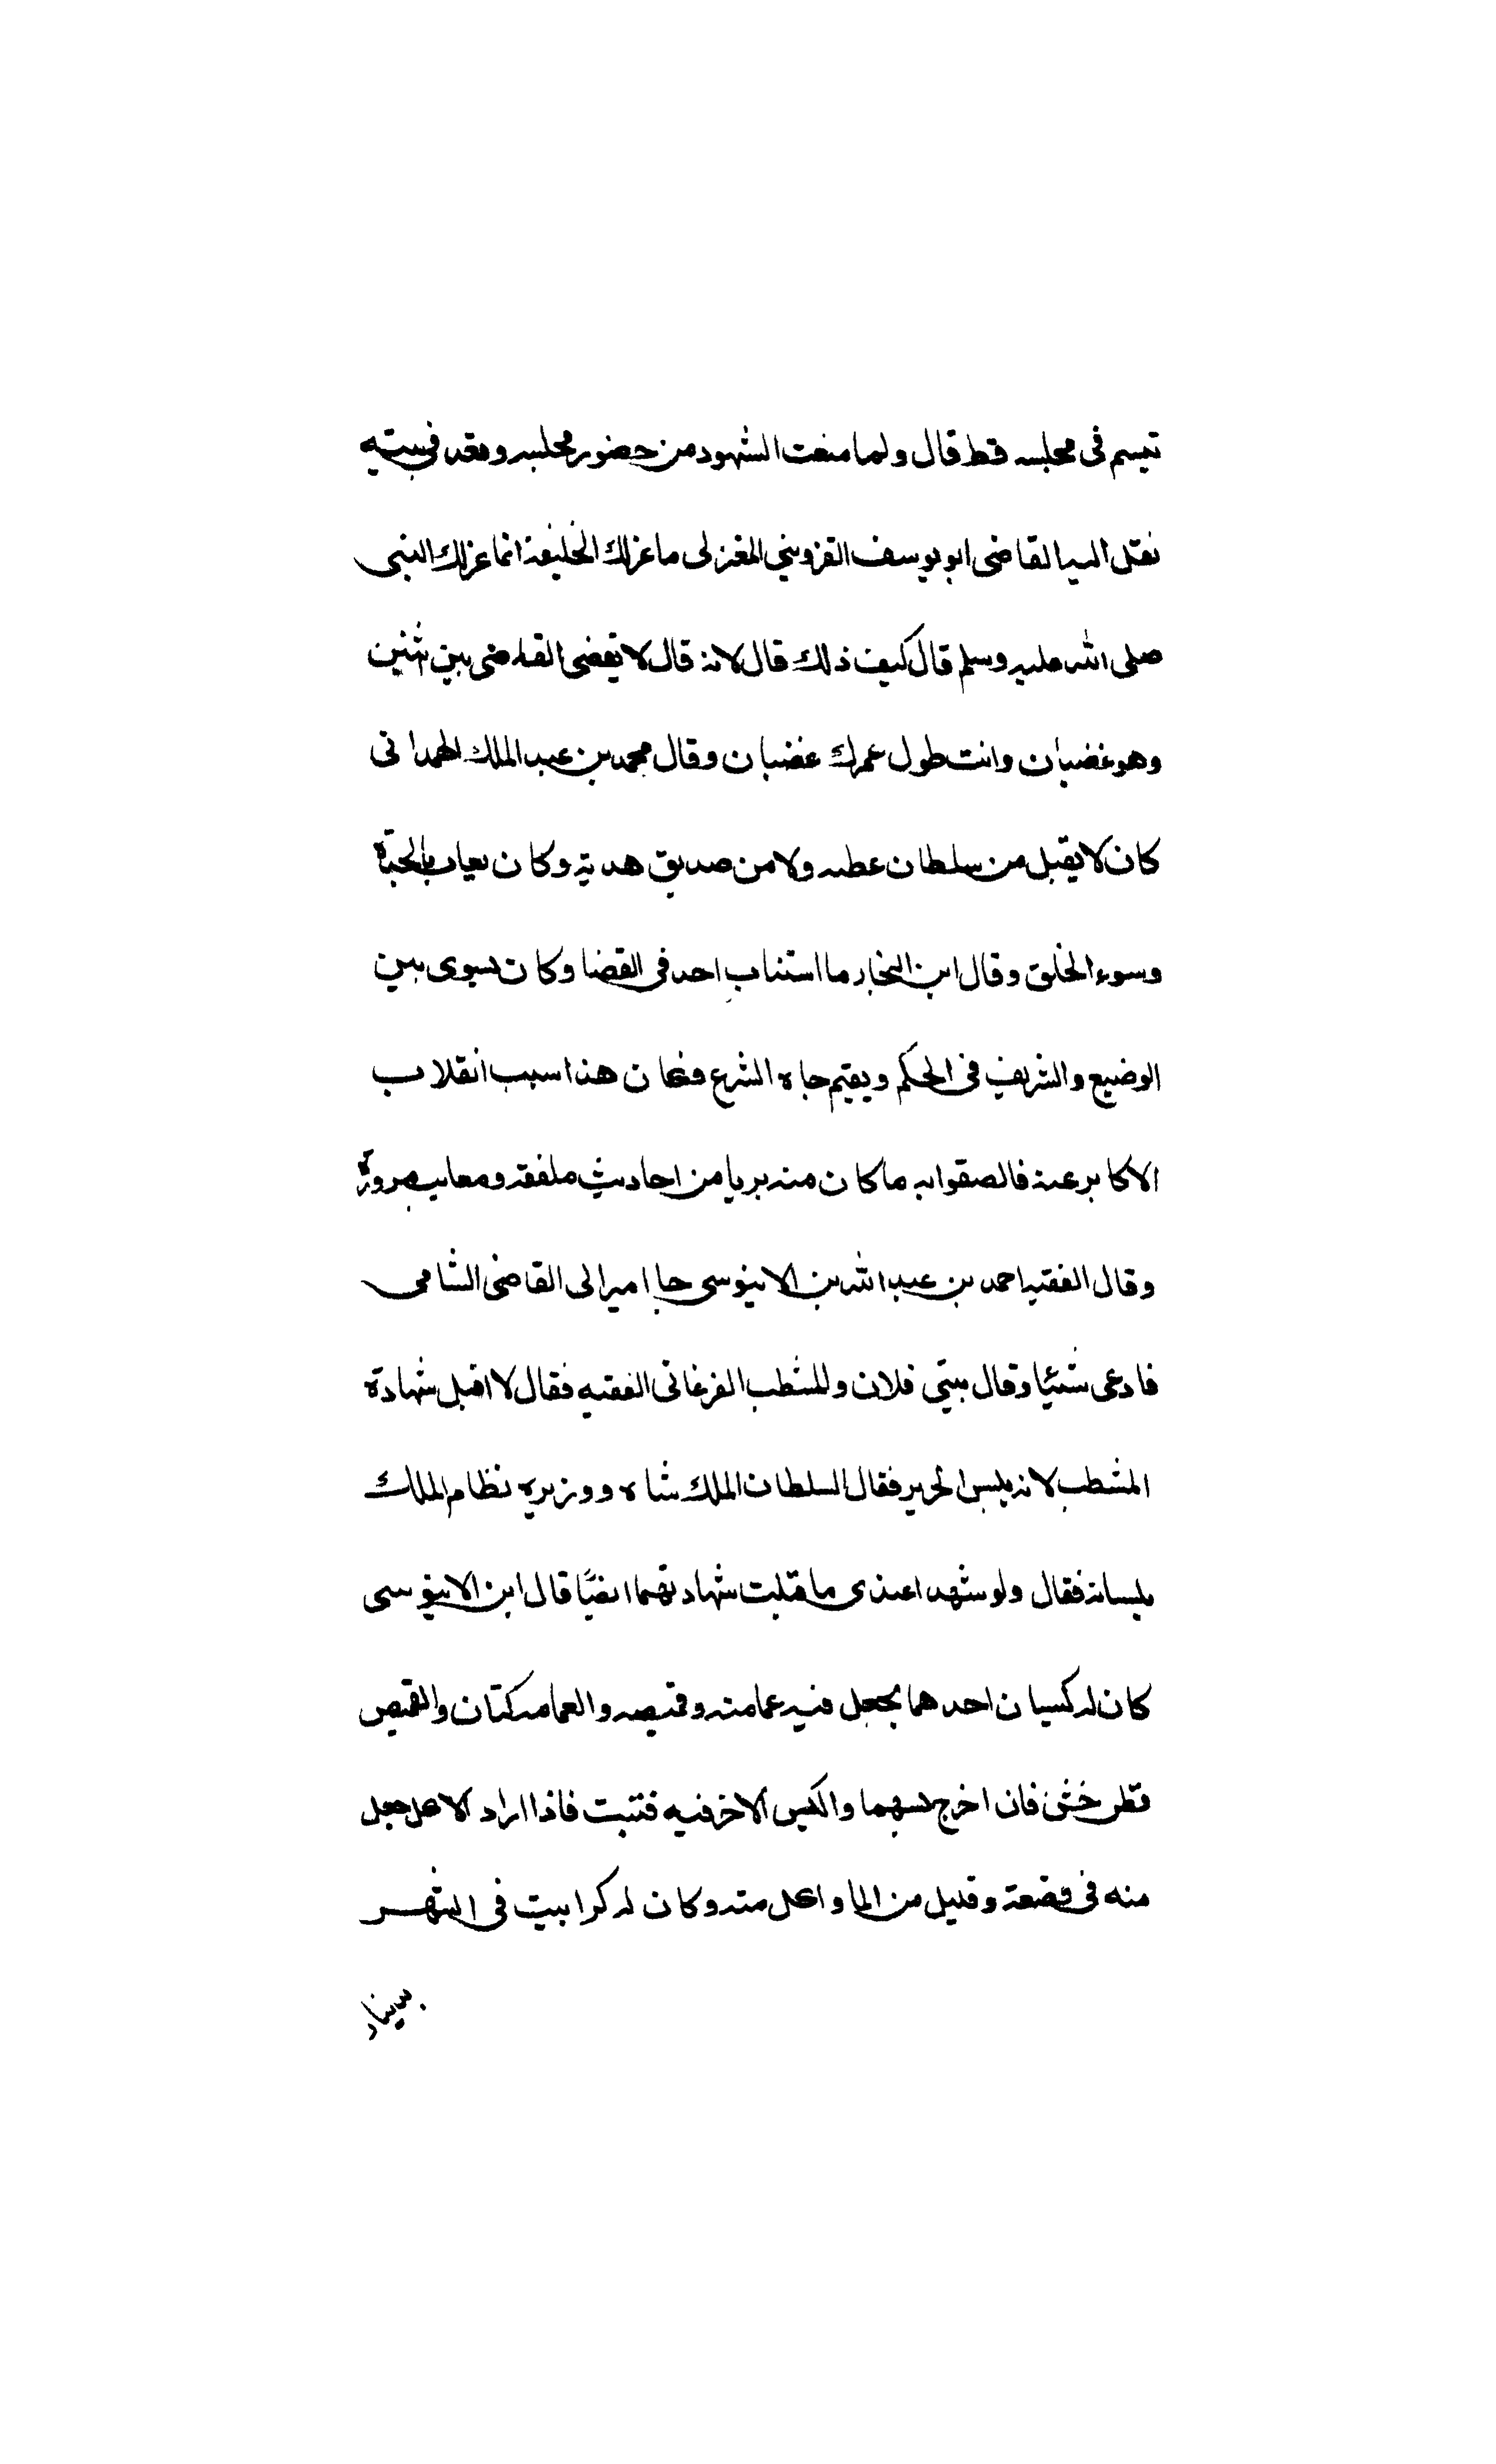 تبسم فى مجلسه قط قال ولما منعت الشهود من حضور مجلسه وقعد فى بيته
نقل اليه القاضى ابو يوسف القزوينى المعتزلى ما عزلك الخليفة انما عزلك النبى
صلى الله عليه وسلم قال كيف ذلك قال لانه قال لا يقضى القاضى بين اثنين
وهو غضبان وانت طول عمرك غضبان وقال محمد بن عبد الملك الهمدانى
كان لا يقبل من سلطان عطيه ولا من صديق هديه وكان يعاب بالحدة
وسوء الخلق وقال ابن النجار ما استناب احد فى القضا وكان يسوى بين
الوضيع والشريف فى الحكم ويقيم جاه الشرع فكان هذا سبب انقلاب
الاكابر عنه فالصقوا به ما كان منه بريا من احاديث ملفقه ومعايب مزورة
وقال الفقيه احمد بن عبد الله بن الابنوسى جا امير الى القاضى الشامى
فادعى شيئا وقال بينتى فلان والمشطب الفرغانى الفقيه فقال لا اقبل شهادة
المشطب لانه يلبس الحرير فقال السلطان الملك شاه ووزيره نظام الملك
يلبسانه فقال ولو شهدا عندى ما قبلت شهادتهما ايضا قال ابن الابنوسى
كان له كيسان احدهما يجعل فيه عمامته وقميصه والعمامه كتان والقميص
قطن خشن فان اخرج لبسهما والكيس الاخر فيه فتيت فاذا اراد الاكل جعل
منه فى قصعة وقليل من الما واكل منه وكان له كرا بيت فى الشهر
بدينار